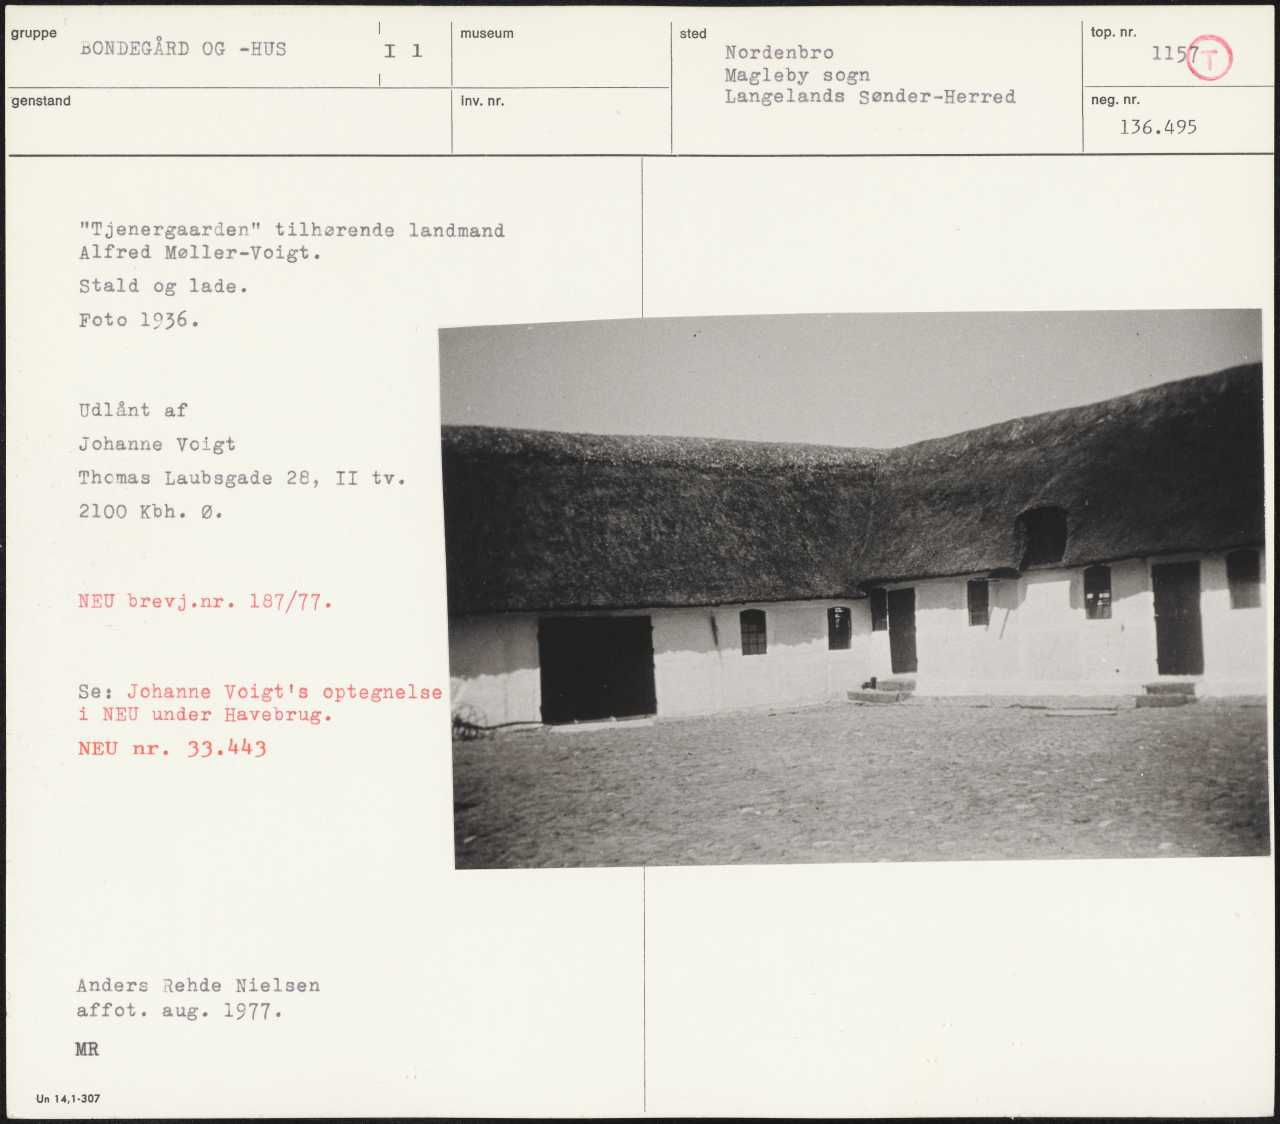 gruppe
BONDEGÅRD OG -HUS
I 1
museum
sted
Nordenbro
Magleby sogn
Langelands Sønder-Herred
top. nr.
1157
T
genstand
inv. nr.
neg. nr.
136.495
"Tjenergaarden" tilhørende landmand
Alfred Møller-Voigt.
Stald og lade.
Foto 1936.
Udlånt af
Johanne Voigt
Thomas Laubsgade 28, II tv.
2100 Kbh. Ø.
NEU brevj.nr. 187/77.
Se: Johanne Voigt's optegnelse
i NEU under Havebrug.
NEU nr. 33.443
Anders Rehde Nielsen
affot. aug. 1977.
MR
Un 14,1-307